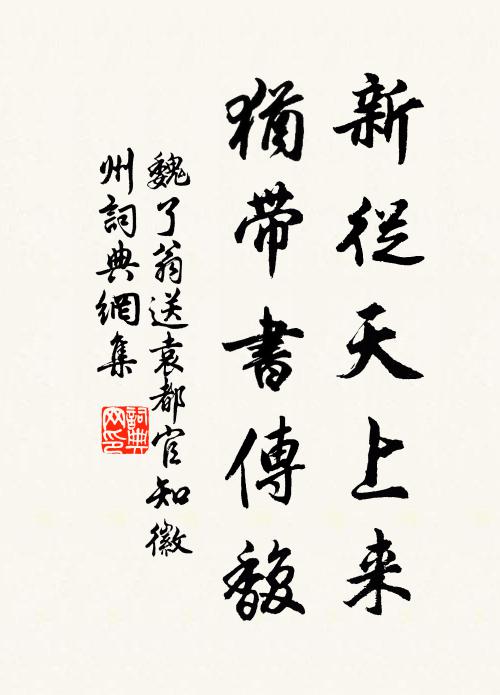 新從天上来
猶帶書傳馥
魏了翁送袁都官知徽
州詞典網集
詞典
网印